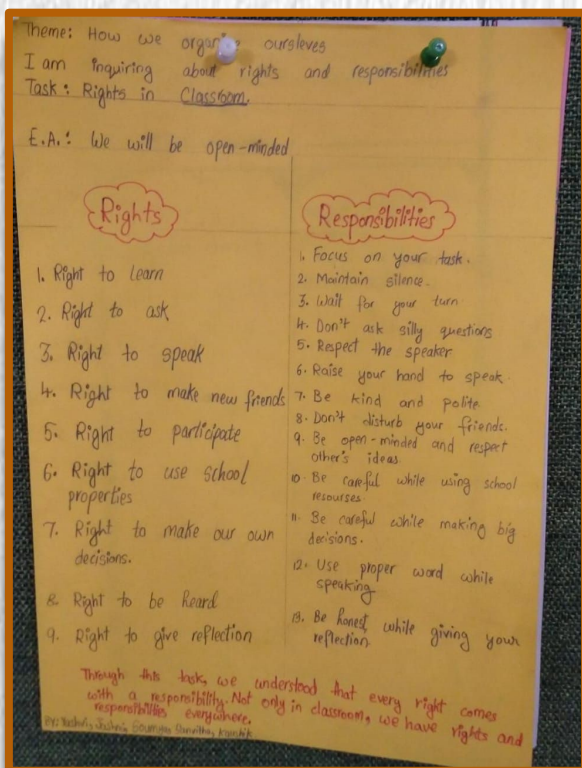 Theme: How we organise ourselves
I am inquiring about rights and responsibilities
Task: Rights in Classroom.
E.A.: We will be open-minded
Rights
1. Right to learn
2. Right to ask
3. Right to speak
4. Right to make new friends
5. Right to participate
6. Right to use school
properties
7. Right to make our own
decisions.
8. Right to be heard
9. Right to give reflection
Responsibilities
1. Focus on your task.
2. Maintain silence.
3. Wait for your turn
4. Don't ask silly questions
5. Respect the speaker
6. Raise your hand to speak.
7. Be kind and polite.
8. Don't disturb your friends.
9. Be open-minded and respect
other's ideas.
10. Be careful while using school
resourses.
11. Be careful while making big
decisions.
12. Use proper word while
speaking
13. Be honest while giving your
reflection.
Through this task, we understood that every right comes
with a responsibility. Not only in classroom, we have rights and
responsibilties everywhere.
By: